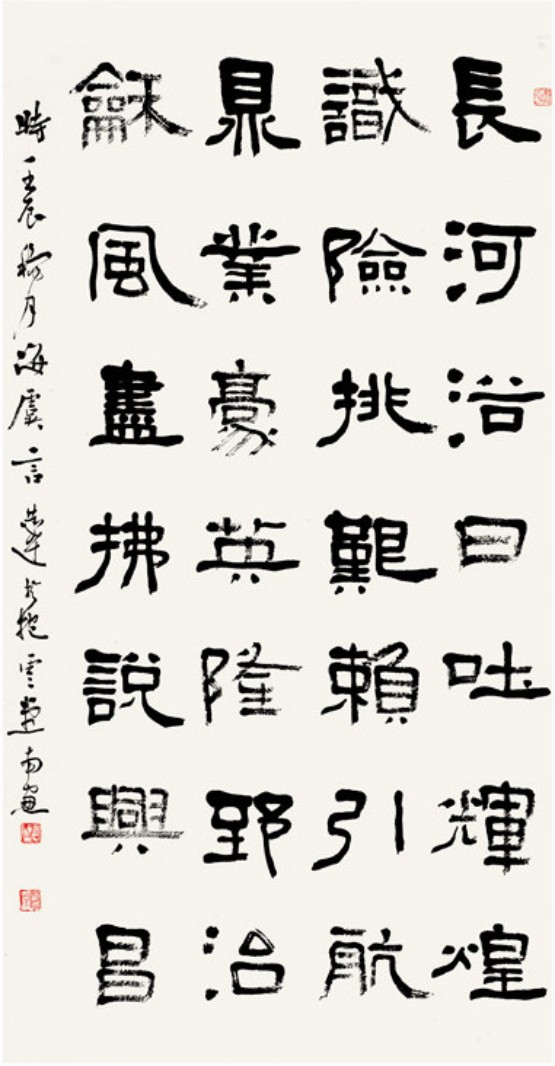 長河浴日吐輝煌
識險挑艱賴引航
鼎業豪英隆郅治
龢風盡拂說興昌
時壬辰穐月海虞言恭達於抱雲堂南窗